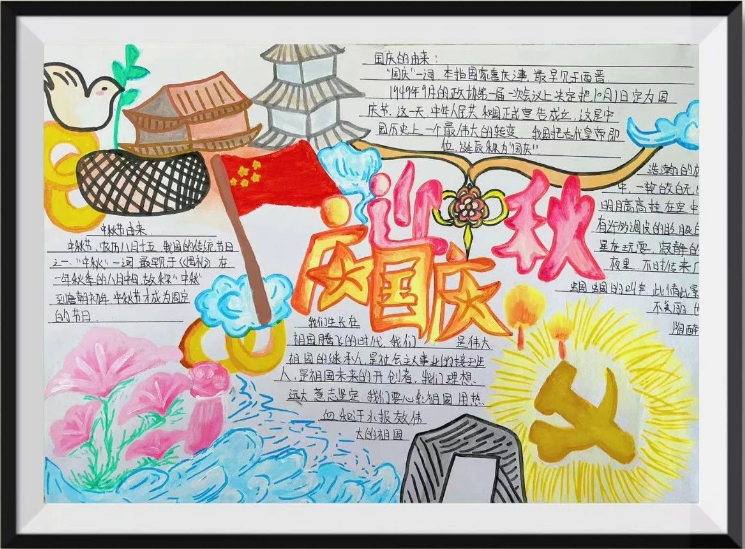 国庆的由来：
"国庆"一词，本指国家喜庆之事，最早见于西晋
1949年9月的政协第一届一次会议上决定把10月1日定为国
庆节，这一天，中华人民共和国正式宣告成立，这是中
国历史上一个最伟大的转变，我国把古代皇帝即
位、诞辰称为"国庆"
迎 秋
庆国庆
中秋节由来
中秋节，农历八月十五，我国的传统节日
之一，"中秋"一词最早于《周礼》在
一年秋季的八月中旬，故称"中秋"
到唐朝初年，中秋节才成为固定
的节日
中，一轮皎白无
明月高高挂在空中
有许多调皮的
星在玩耍，寂静的
夜里，不时传来
蝈蝈的叫声，此情此景
不美丽
陶醉
我们生长在
祖国腾飞的时代，我们 是伟大
祖国的继承人，是社会主义事业的接班
人，是祖国未来的开创者，我们理想
远大，意志坚定，我们要心系祖国，用热
血和汗水报效伟
大的祖国